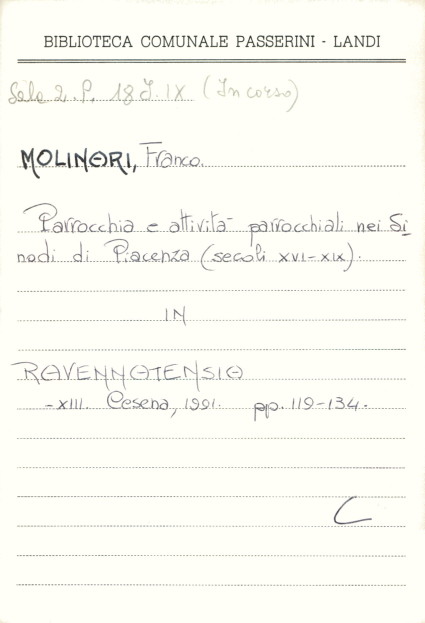 BIBLIOTECA COMUNALE PASSERINI - LANDI
Sala 2. P. 18 J. IX (In corso)
MOLINARI, Franco.
Parrocchia e attività parrocchiali nei Si
nodi di Piacenza (secoli XVI-XIX).
IN
RAVENNATENSIA
-XIII. Cesena, 1991. pp. 119-134.
C